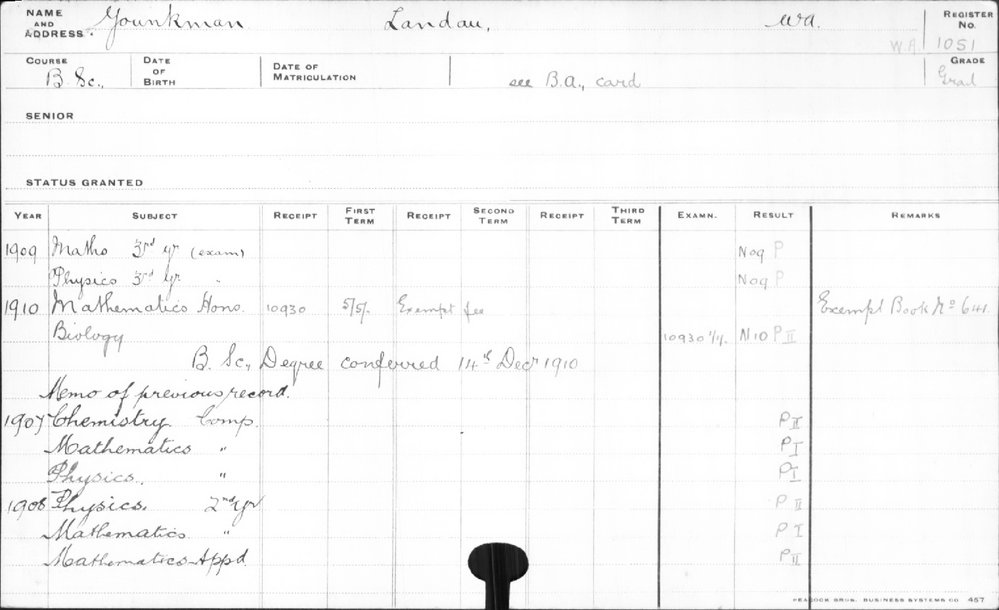 NAME AND ADDRESS. Younkman Landau, Wa. REGISTER No.
WA 1051
COURSE B. Sc., DATE OF BIRTH DATE OF MATRICULATION see B.A., card GRADE Grad
SENIOR
STATUS GRANTED
YEAR SUBJECT RECEIPT FIRST TERM RECEIPT SECOND TERM RECEIPT THIRD TERM EXAMN. RESULT REMARKS
1909 Maths 3rd yr (exam) No9 P
Physics 3rd yr " No9 P
1910 Mathematics Hons. 10930 5/5/. Exempt fee Exempt Book No 641.
Biology 10930 1/1/. N10 P II
B. Sc., Degree conferred 14th Decr 1910
Memo of previous record.
1907 Chemistry Comp. P II
Mathematics " P I
Physics. " P I
1908 Physics. 2nd yr P II
Mathematics " P I
Mathematics Appd. P II
PEACOCK BROS. BUSINESS SYSTEMS CO 457